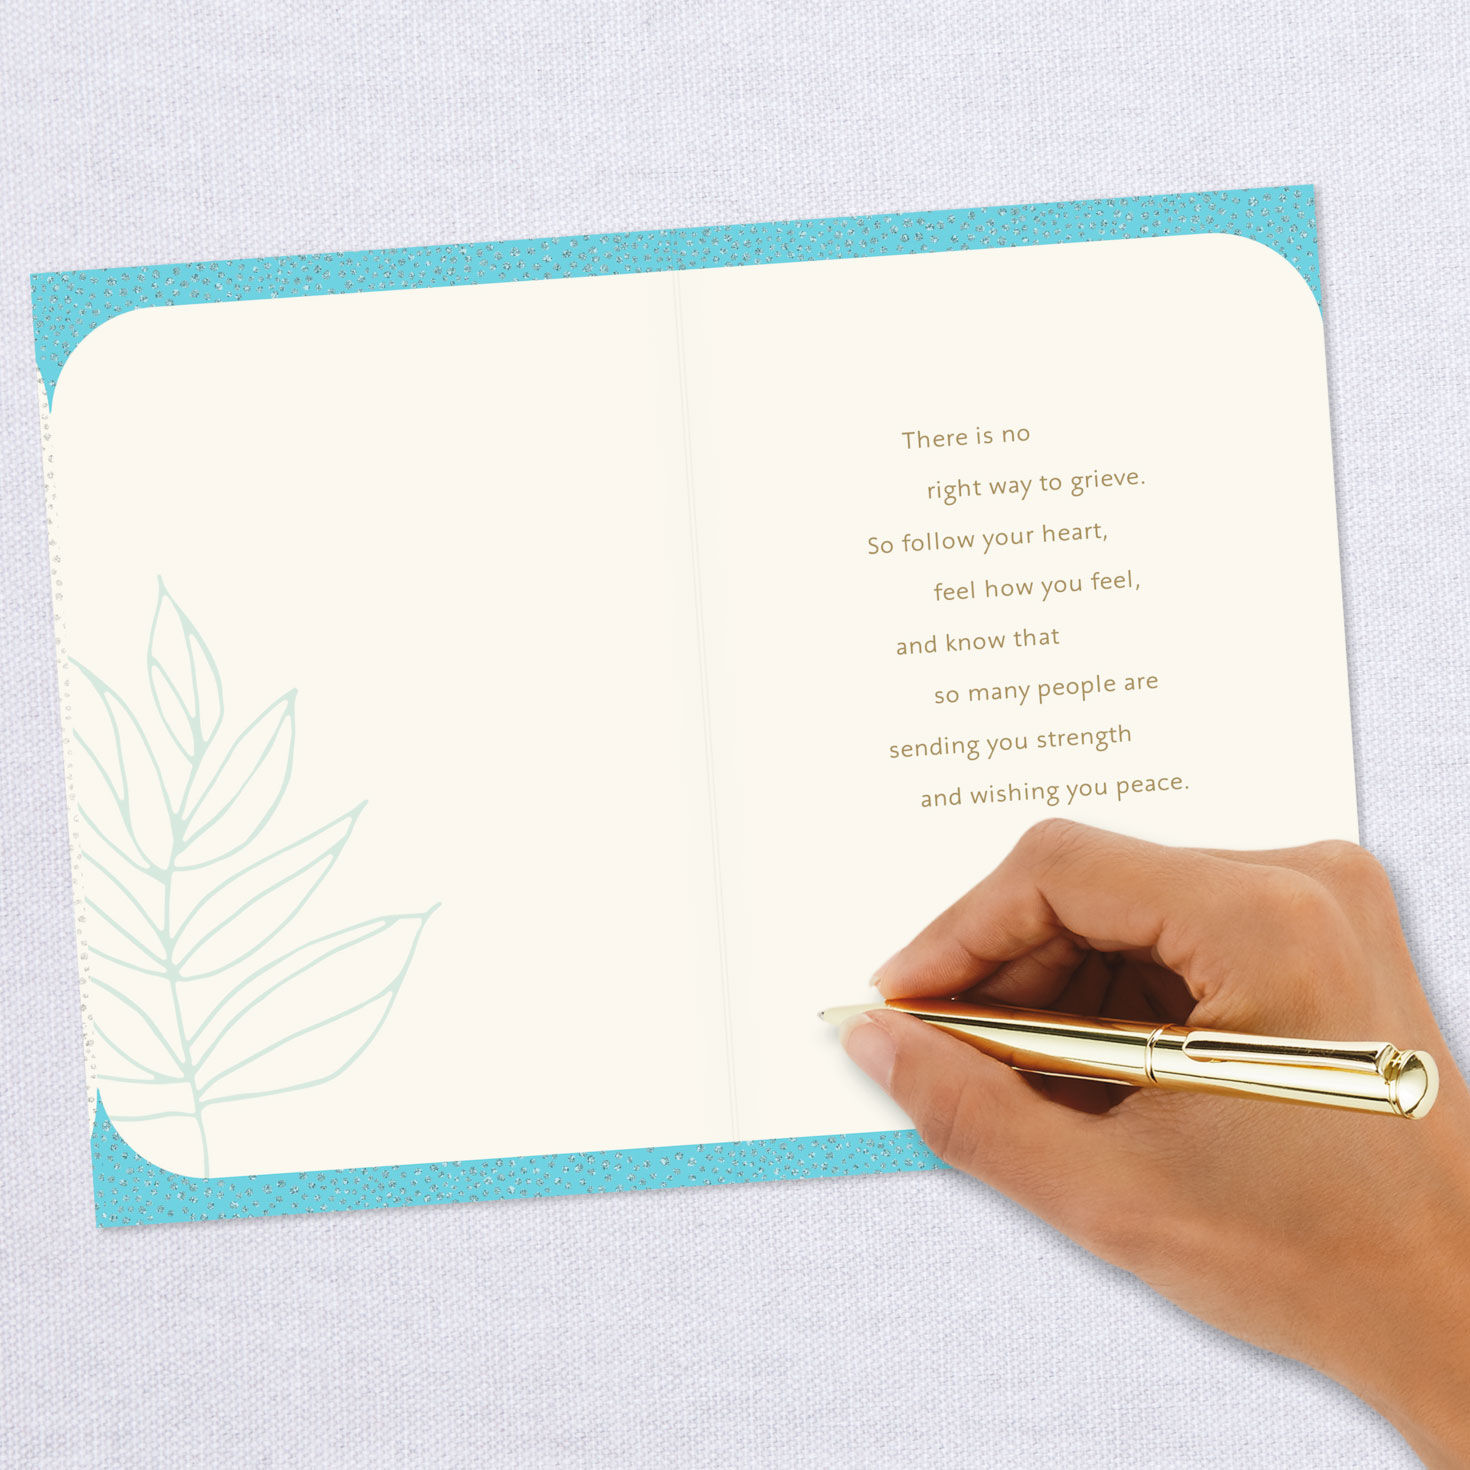 There is no
right way to grieve.
So follow your heart,
feel how you feel,
and know that
so many people are
sending you strength
and wishing you peace.